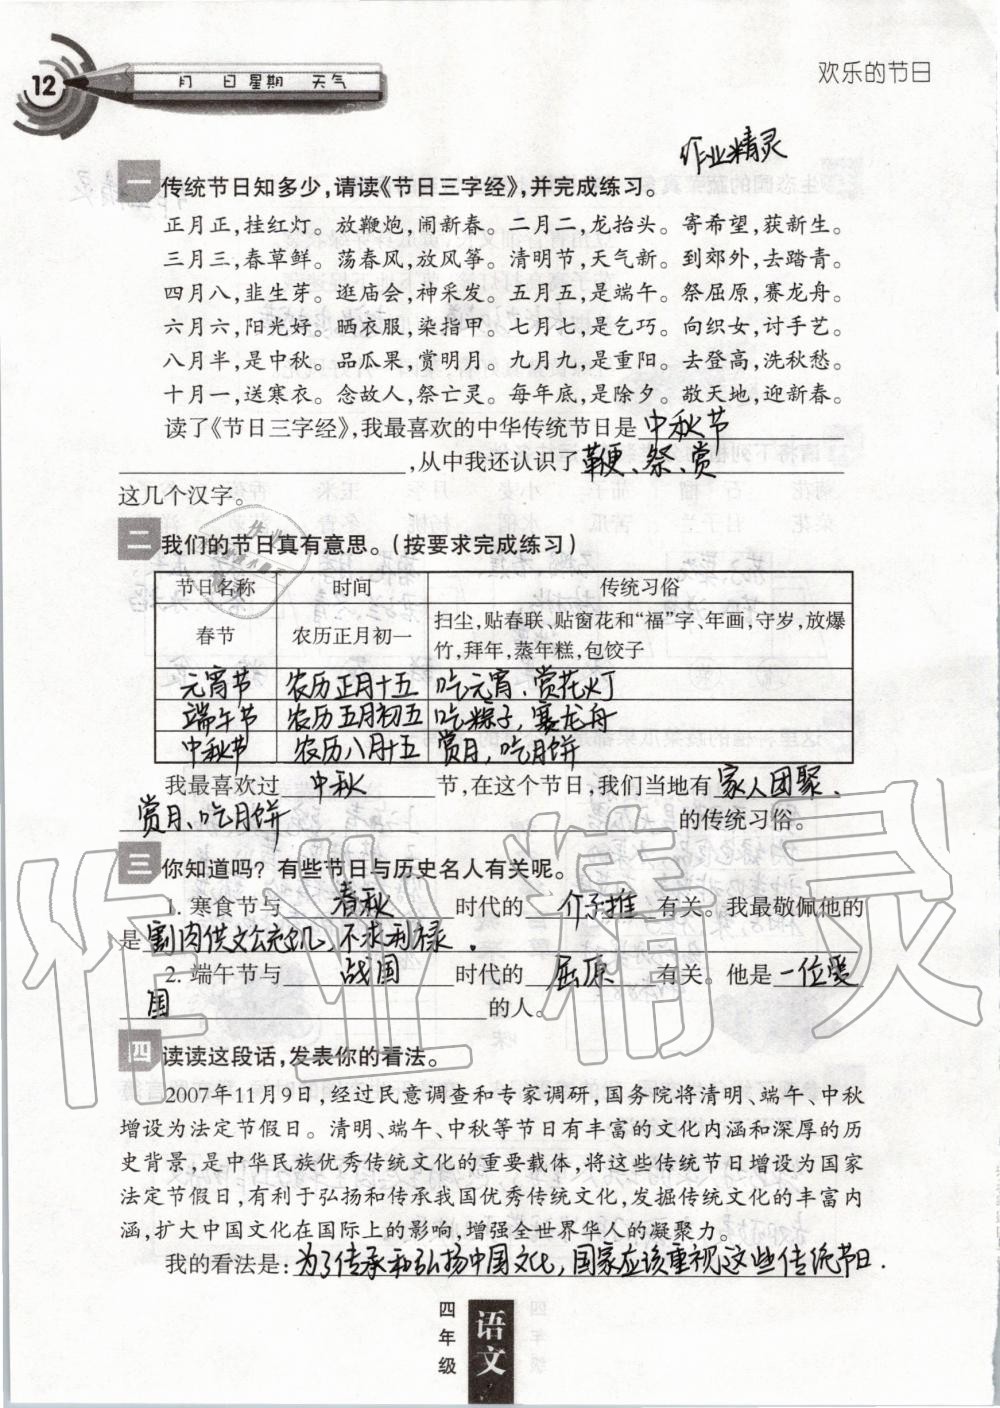 12
月 日 星期 天气
欢乐的节日
作业精灵
一 传统节日知多少,请读《节日三字经》,并完成练习。
正月正,挂红灯。放鞭炮,闹新春。二月二,龙抬头。寄希望,获新生。
三月三,春草鲜。荡春风,放风筝。清明节,天气新。到郊外,去踏青。
四月八,韭生芽。逛庙会,神采发。五月五,是端午。祭屈原,赛龙舟。
六月六,阳光好。晒衣服,染指甲。七月七,是乞巧。向织女,讨手艺。
八月半,是中秋。品瓜果,赏明月。九月九,是重阳。去登高,洗秋愁。
十月一,送寒衣。念故人,祭亡灵。每年底,是除夕。敬天地,迎新春。
读了《节日三字经》,我最喜欢的中华传统节日是中秋节
,从中我还认识了鞭、祭、赏
这几个汉字。
二 我们的节日真有意思。(按要求完成练习)
节日名称 时间 传统习俗
春节 农历正月初一 扫尘,贴春联、贴窗花和“福”字、年画,守岁,放爆
竹,拜年,蒸年糕,包饺子
元宵节 农历正月十五 吃元宵、赏花灯
端午节 农历五月初五 吃粽子,赛龙舟
中秋节 农历八月十五 赏月、吃月饼
我最喜欢过 中秋 节,在这个节日,我们当地有 家人团聚、
赏月、吃月饼 的传统习俗。
三 你知道吗?有些节日与历史名人有关呢。
1. 寒食节与 春秋 时代的 介子推 有关。我最敬佩他的
是割肉供文公充饥,不求利禄.
2. 端午节与 战国 时代的 屈原 有关。他是一位爱
国 的人。
四 读读这段话,发表你的看法。
2007年11月9日,经过民意调查和专家调研,国务院将清明、端午、中秋
增设为法定节假日。清明、端午、中秋等节日有丰富的文化内涵和深厚的历
史背景,是中华民族优秀传统文化的重要载体,将这些传统节日增设为国家
法定节假日,有利于弘扬和传承我国优秀传统文化,发掘传统文化的丰富内
涵,扩大中国文化在国际上的影响,增强全世界华人的凝聚力。
我的看法是:为了传承和弘扬中国文化,国家应该重视这些传统节日.
四年级
语文
作业精灵